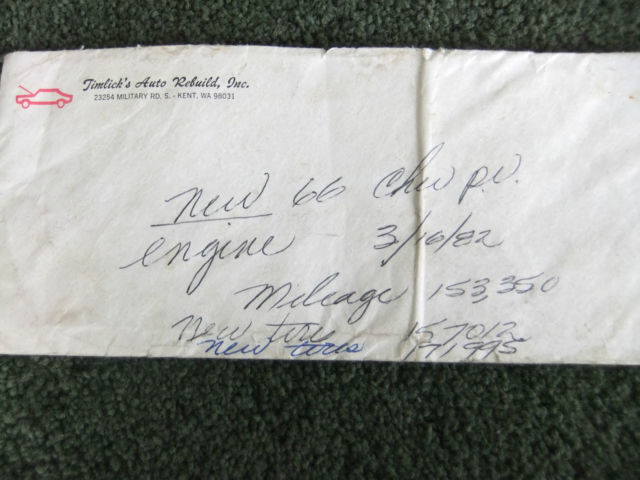 Timlick's Auto Rebuild, Inc.
23254 MILITARY RD. S. - KENT, WA 98031
new 66 Chev p.u.
engine 3/16/82
Mileage 153,350
New tire 157012
new tires 171995